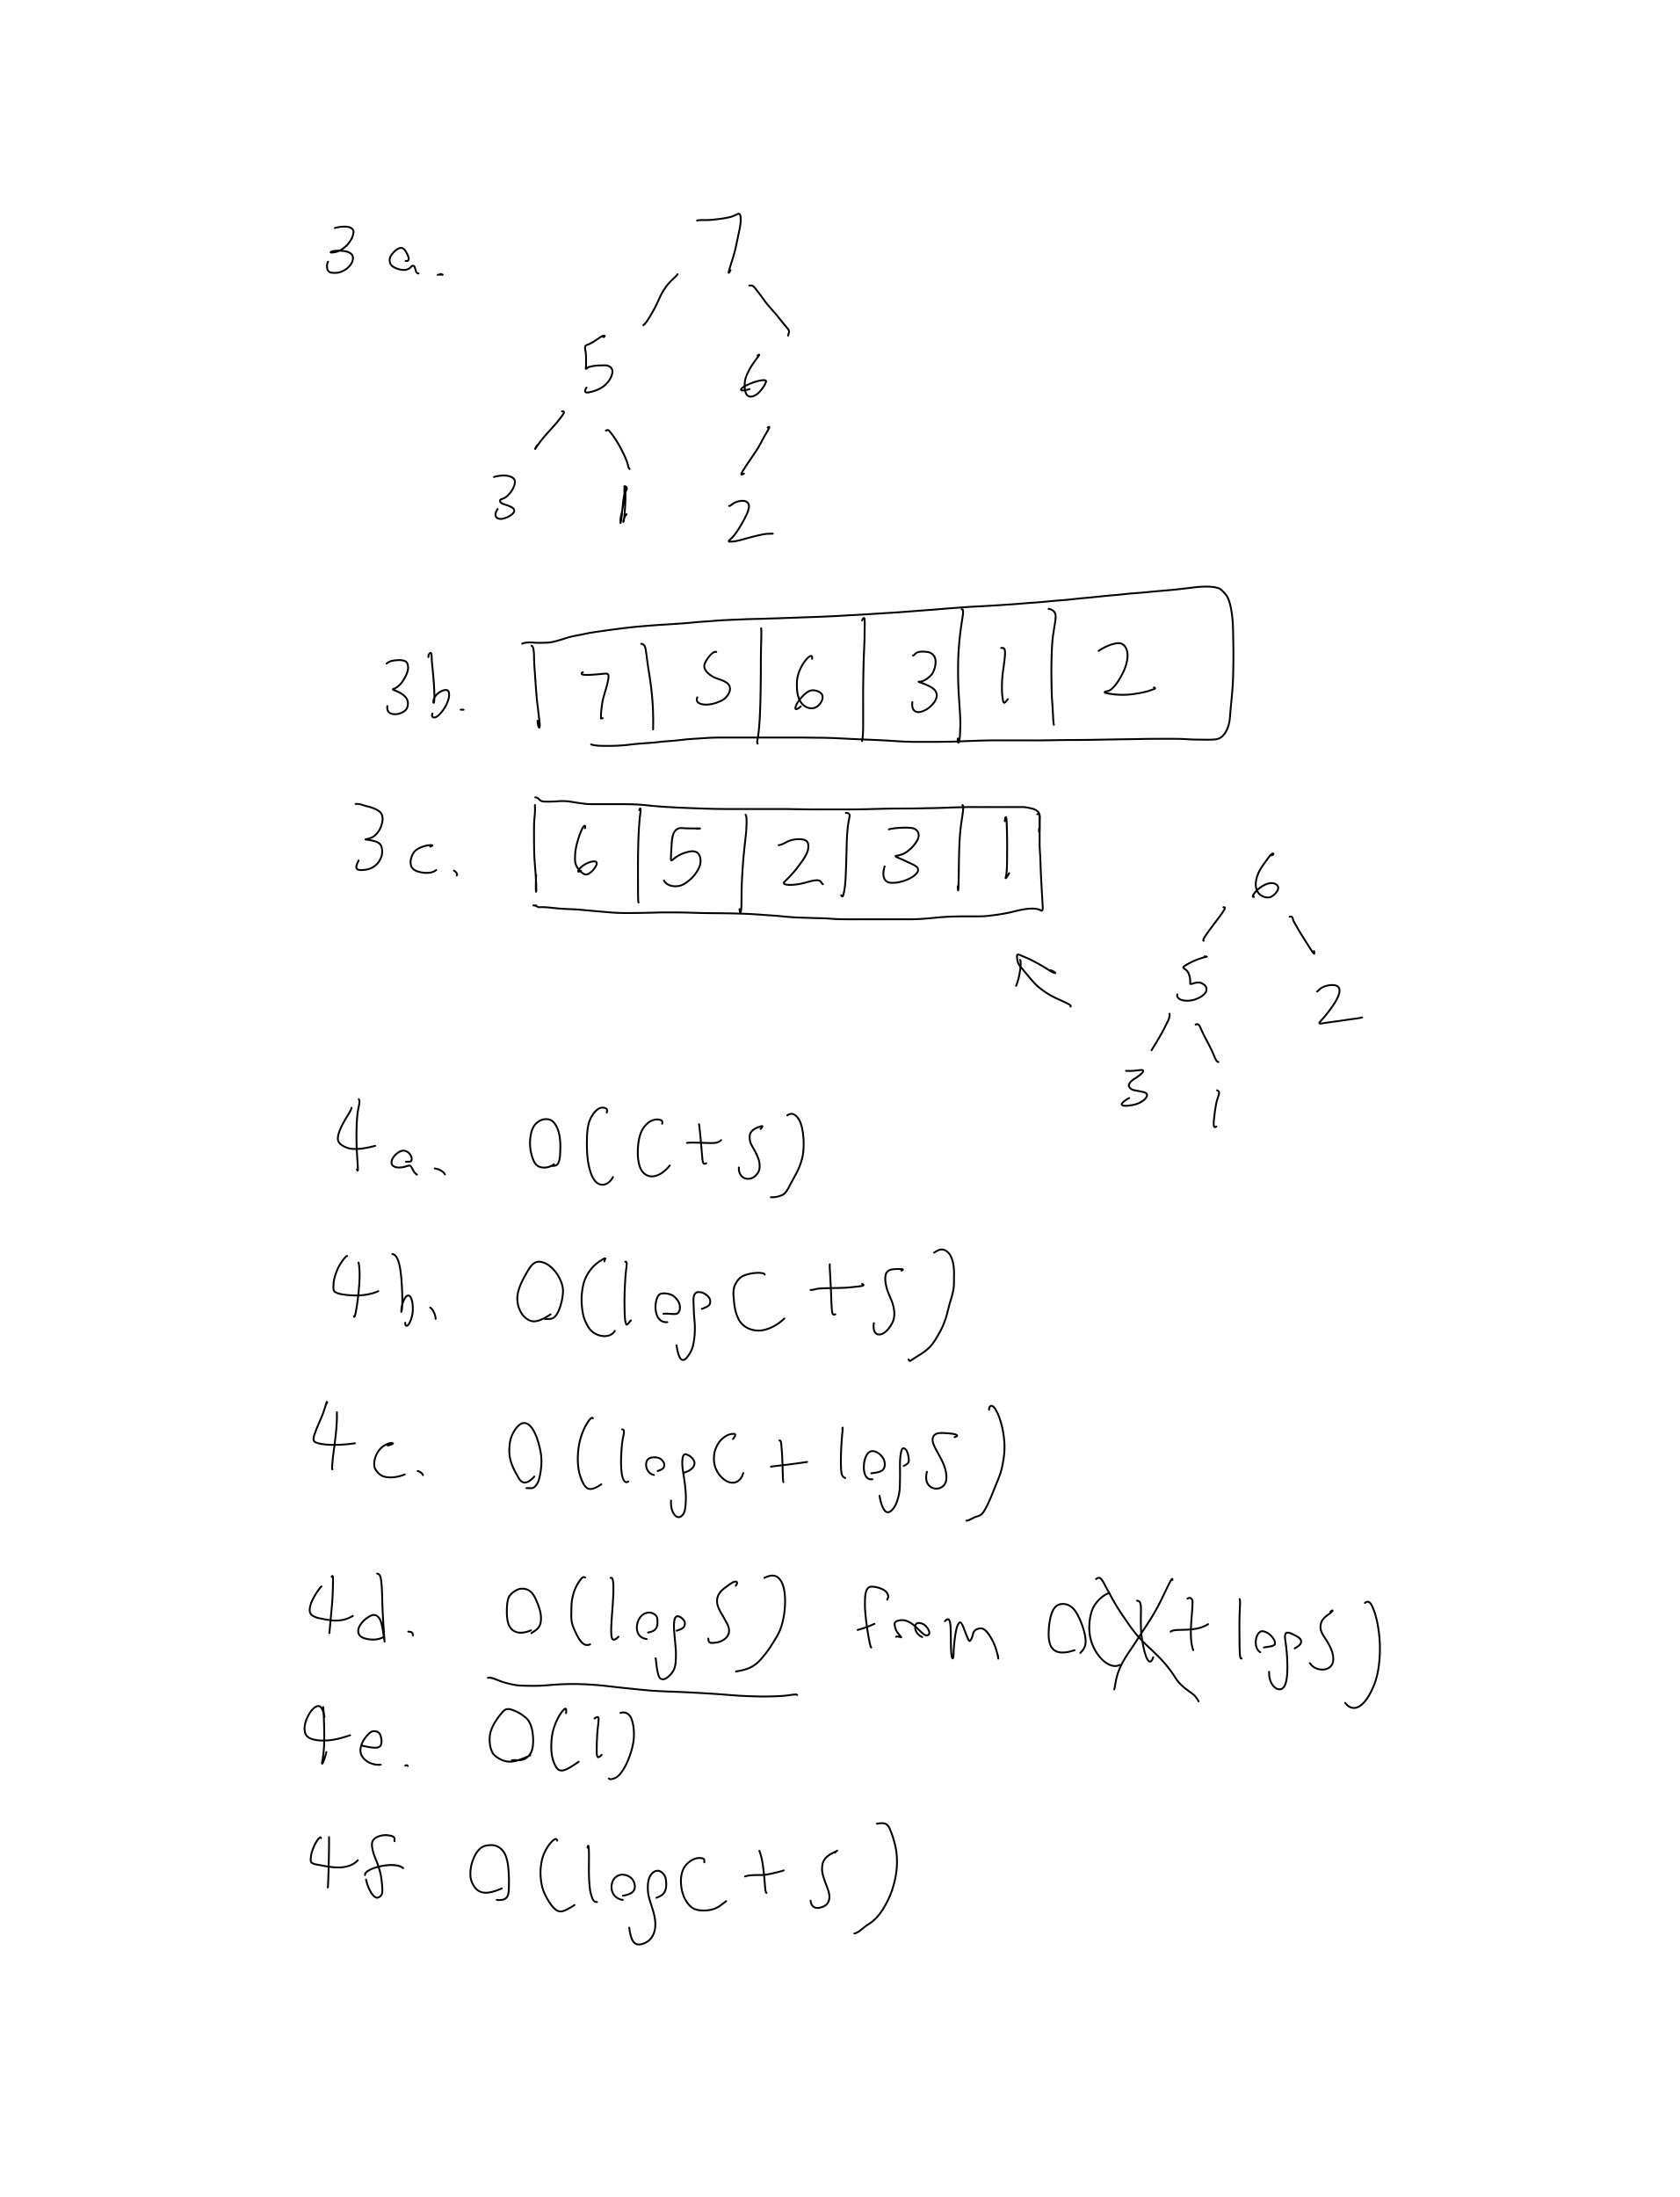 3a.
7
5 6
3 1 2
3b. 7 5 6 3 1 2
3c. 6 5 2 3 1
6
5 2
3 1
4a. O(C+S)
4b. O(logC+S)
4c. O(logC+logS)
4d. O(logS) from O(1+logS)
4e. O(1)
4f O(logC+S)